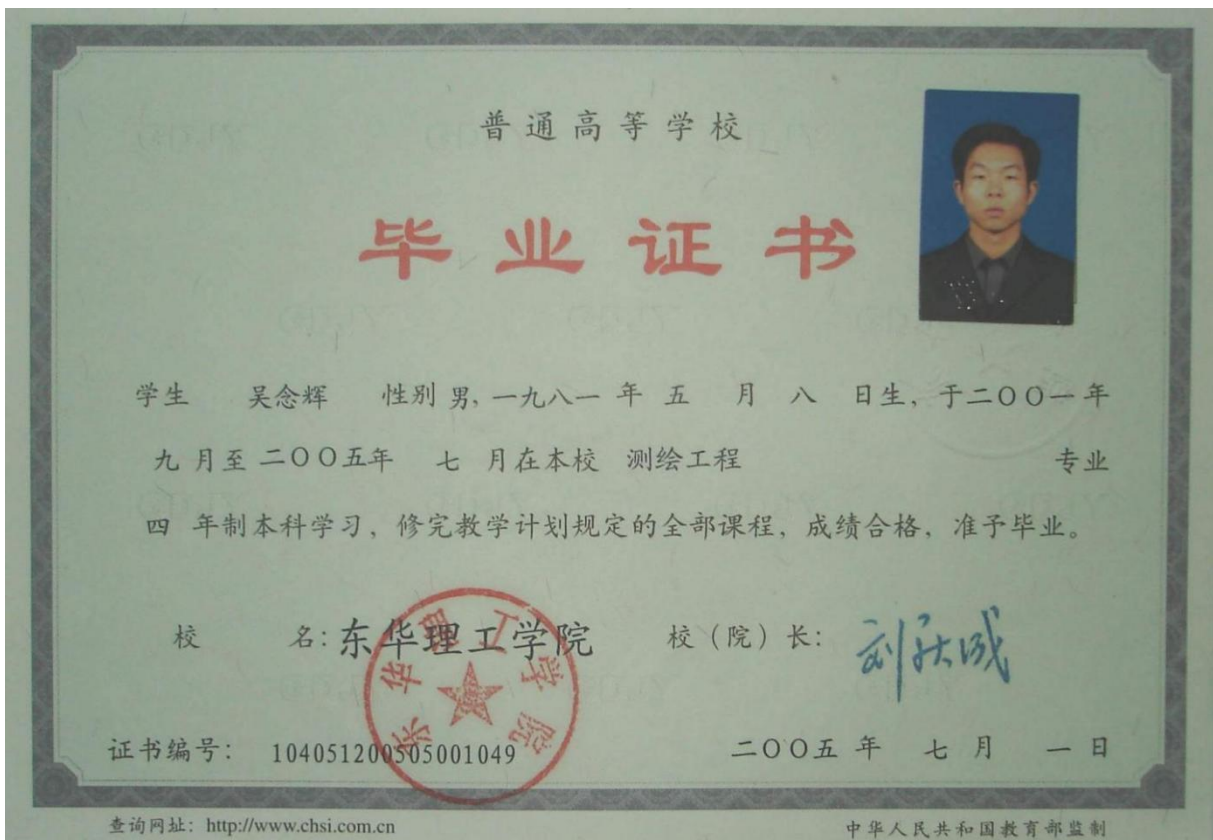 普通高等学校
毕业证书
学生 吴念辉 性别 男, 一九八一 年 五 月 八 日生, 于二〇〇一年
九 月至 二〇〇五年 七 月在本校 测绘工程 专业
四 年制本科学习, 修完教学计划规定的全部课程, 成绩合格, 准予毕业。
校 名: 东华理工学院 校(院)长:
东华理工学院
证书编号: 104051200505001049 二〇〇五 年 七 月 一 日
查询网址: http://www.chsi.com.cn 中华人民共和国教育部监制